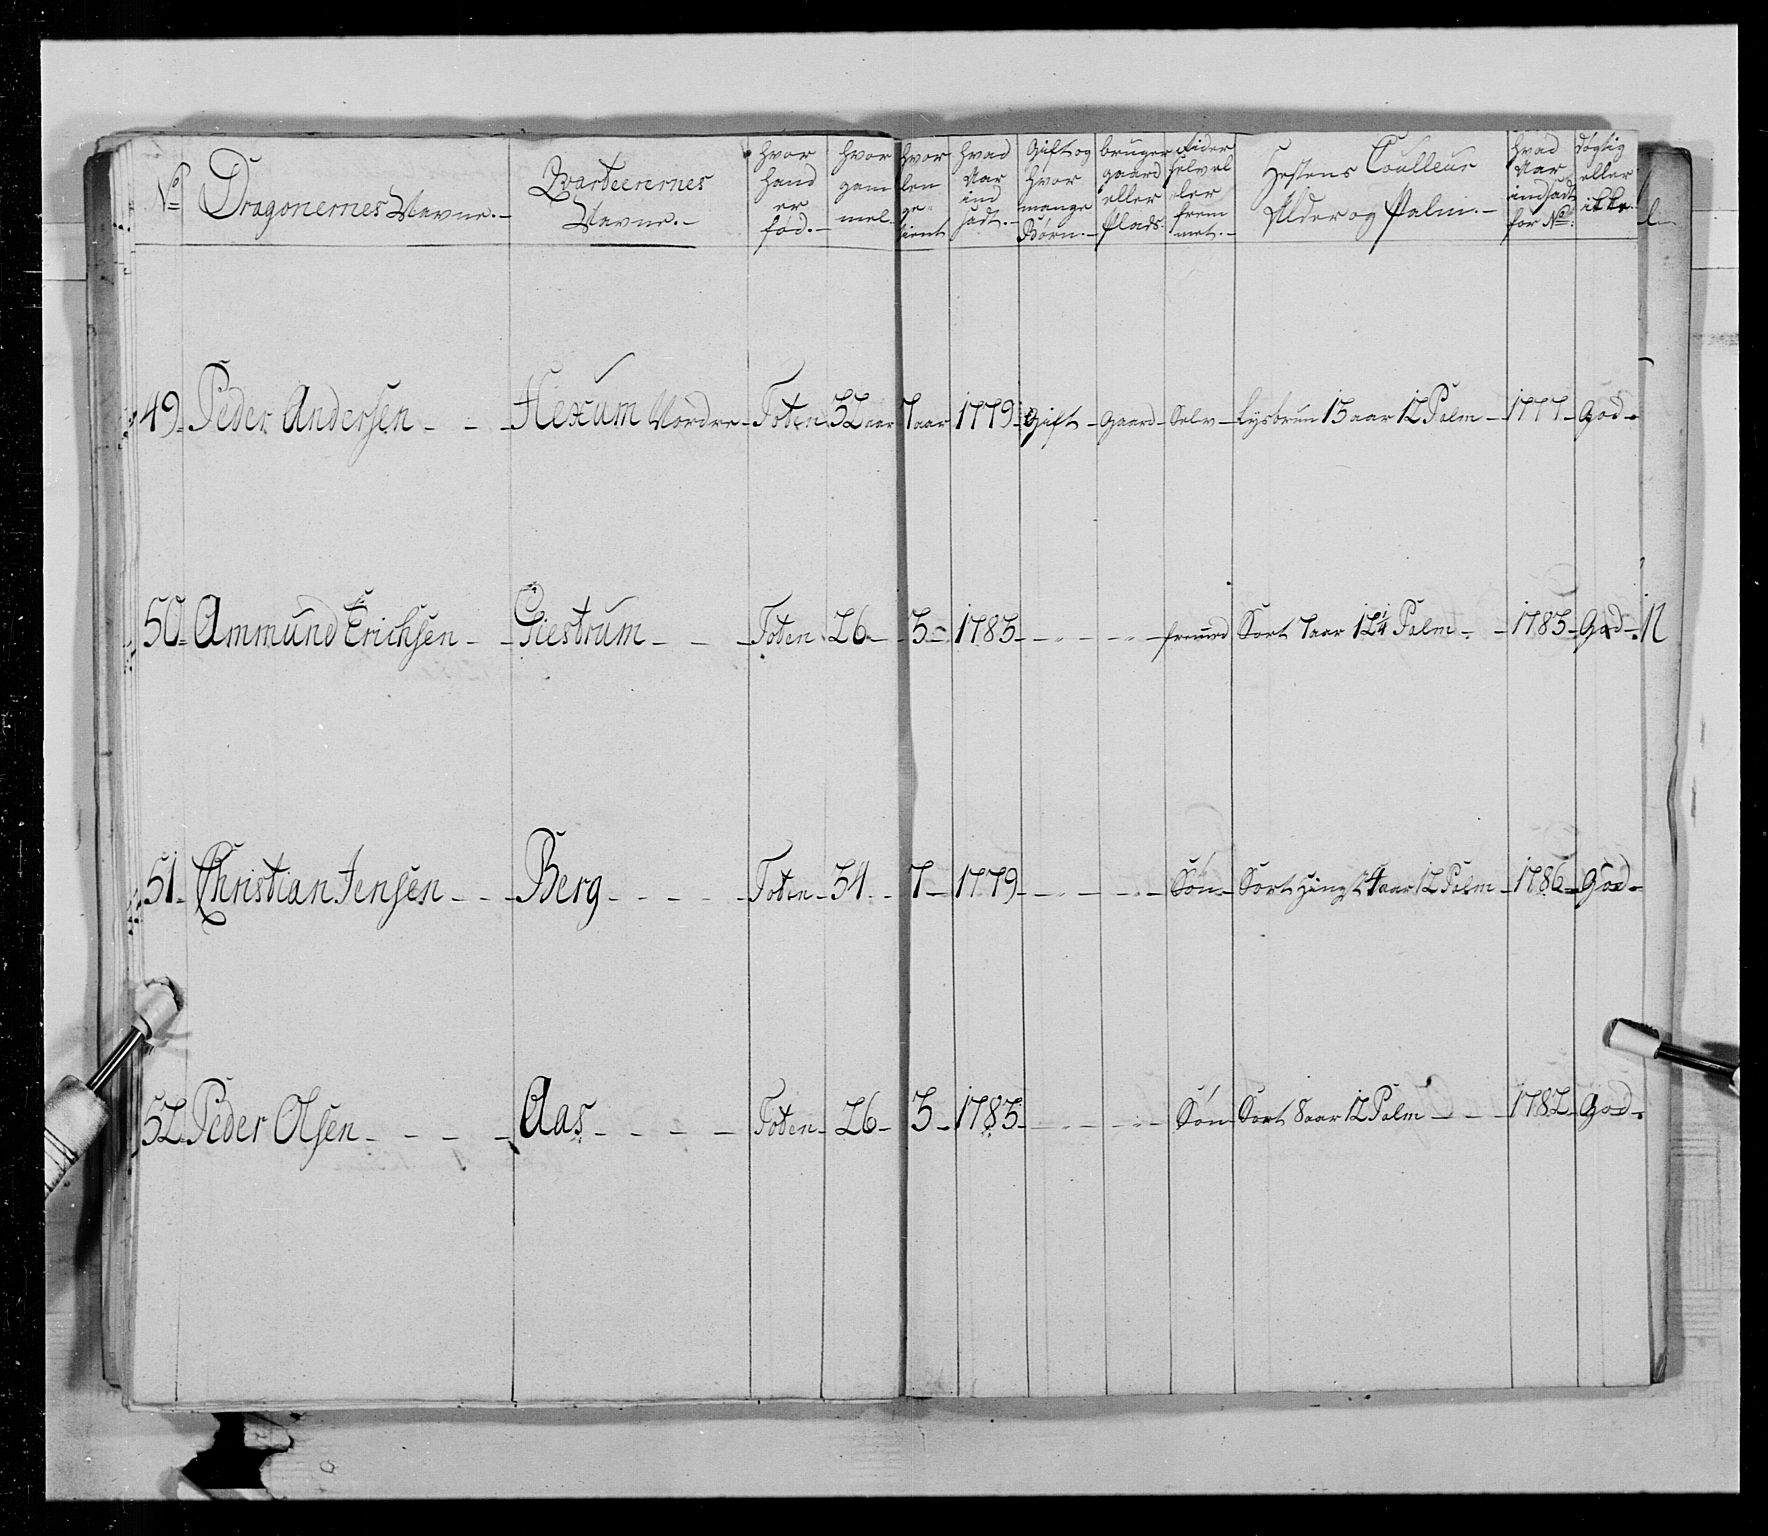 No Dragonernes Navne.- Qvarteerernes Navne.- hvor hand er fød.- hvor gam mel- hvor len ge tient hvad Aar ind sadt.- Gift og hvor mange Børn.- bruger gaard eller Plads. Rider selv el ler frem met.- Hestens Coulleur Alder og Palm.- hvad Aar indsadt for No døgtig eller ikke.
49. Peder Andersen - - - Hexum Nordre - Toten 32 aar 7 aar 1779. Gift - gaard - Selv - Lysbrun 15 aar 12 Palm - 1777 - God -
50. Ammund Erichsen - - Giestrum - - - Toten 26 - 3 - 1783 - - - - fremed Sort 7 aar 12 1/4 Palm - - 1783 - God -
51. Christian Jensen - - - Berg - - - - - Toten - 34 - - 7 - 1779 - - - - - Søn - Sort Hingst 4 aar 12 Palm - 1786 - God -
52. Peder Olsen - - - - - Aas - - - - - Toten - 26 - 3 - 1783 - - - - - Søn - Sort 8 aar 12 Palm - - - 1782 - God -